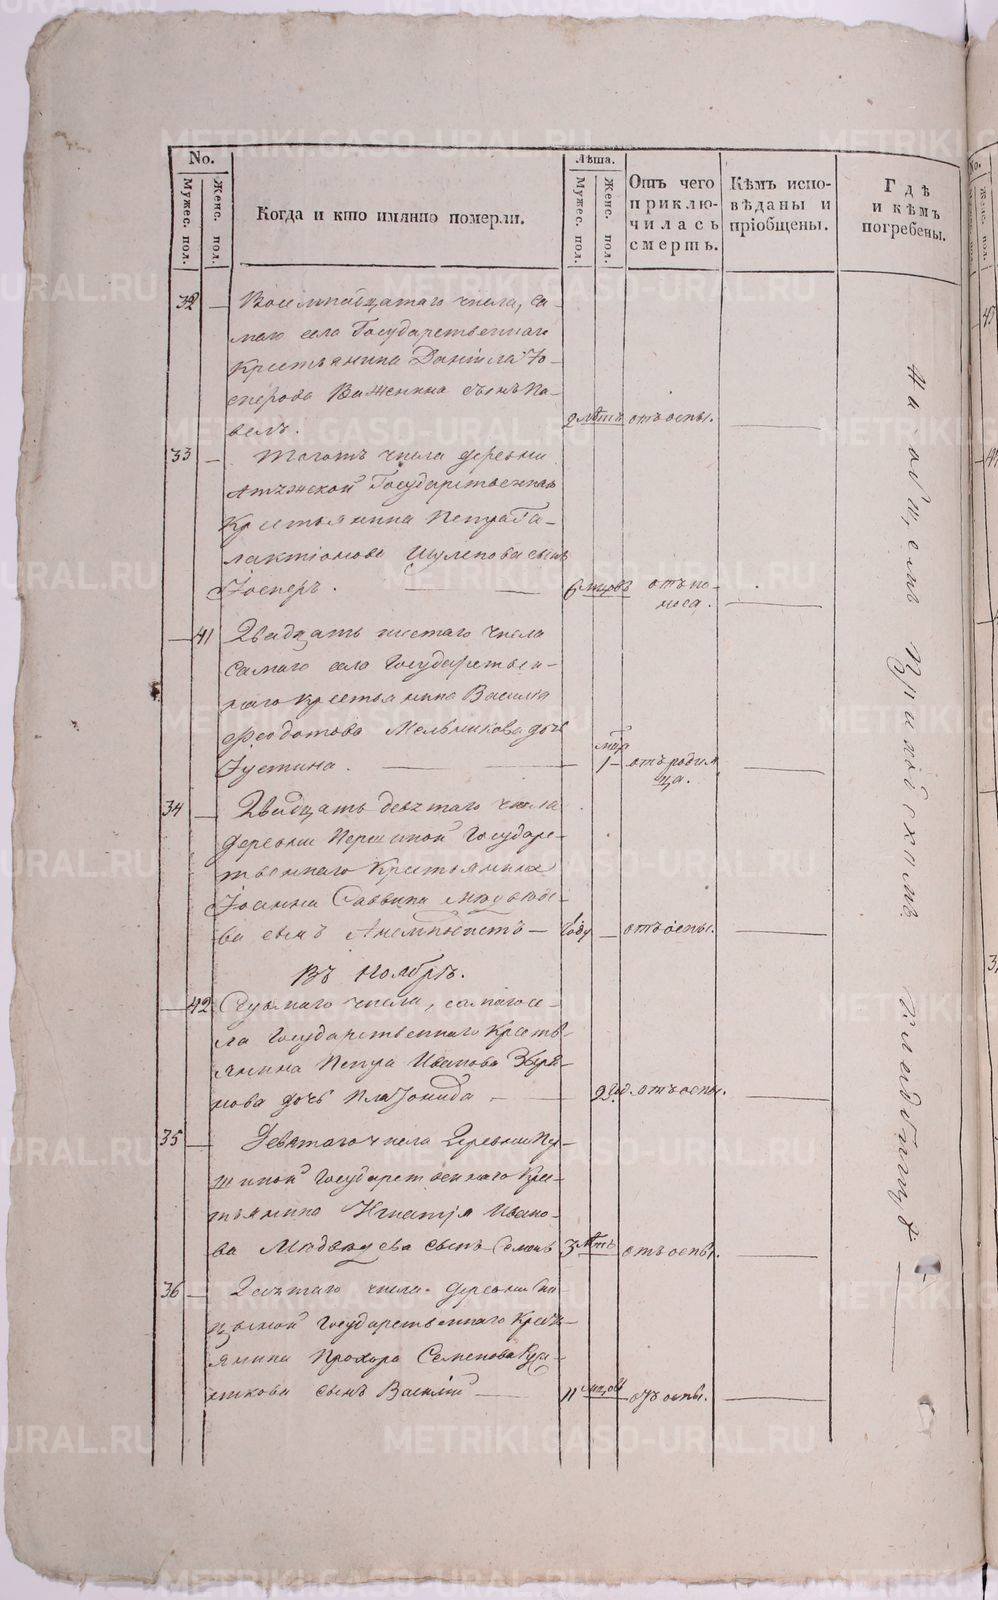 No.
Мужес. пол.
Женс. пол.
Когда и кто имянно померли.
Лѣта.
Мужес. пол.
Женс. пол.
Отъ чего
приклю-
чилась
смерть.
Кѣмъ испо-
вѣданы и
пріобщены.
Гдѣ
и кѣмъ
погребены.
32 — Восемнадцатаго числа, са-
маго села Государственнаго
Крестьянина Даніила Іо-
Важенина сынъ Па-
велъ. 2 лѣтъ отъ оспы.
33 — Тогожъ числа деревни
Государственнаго
Крестьянина Петра Га-
лактіонова Шулепова сынъ
6 мцовъ отъ по-
носа.
— 41 Двадцать шестаго числа
самаго села Государствен-
наго крестьянина Василія
Феодотова Мельникова дочь
Іустина. 1 мца отъ родим
ца.
34 — Двадцать девятаго числа
деревни Першиной Государс-
твеннаго Крестьянина
Іоанна Саввина
ва сынъ — 1 году — отъ оспы.
Въ Ноябрѣ.
— 42 Седьмаго числа, самаго се-
ла Государственнаго Кресть-
янина Петра Иванова Зыря-
нова дочь Платонида 2 год. отъ оспы.
35 — Девятаго числа деревни
Государственнаго Крес-
тьянина Игнатія Ивано-
ва сынъ Семенъ 3 лѣтъ отъ оспы.
36 — Десятаго числа деревни
Государственнаго Крест-
янина Прохора Семенова
сынъ Василій — 11 мцовъ отъ оспы.
На общемъ приходскомъ кладбищѣ
METRIKI.GASO-URAL.RU